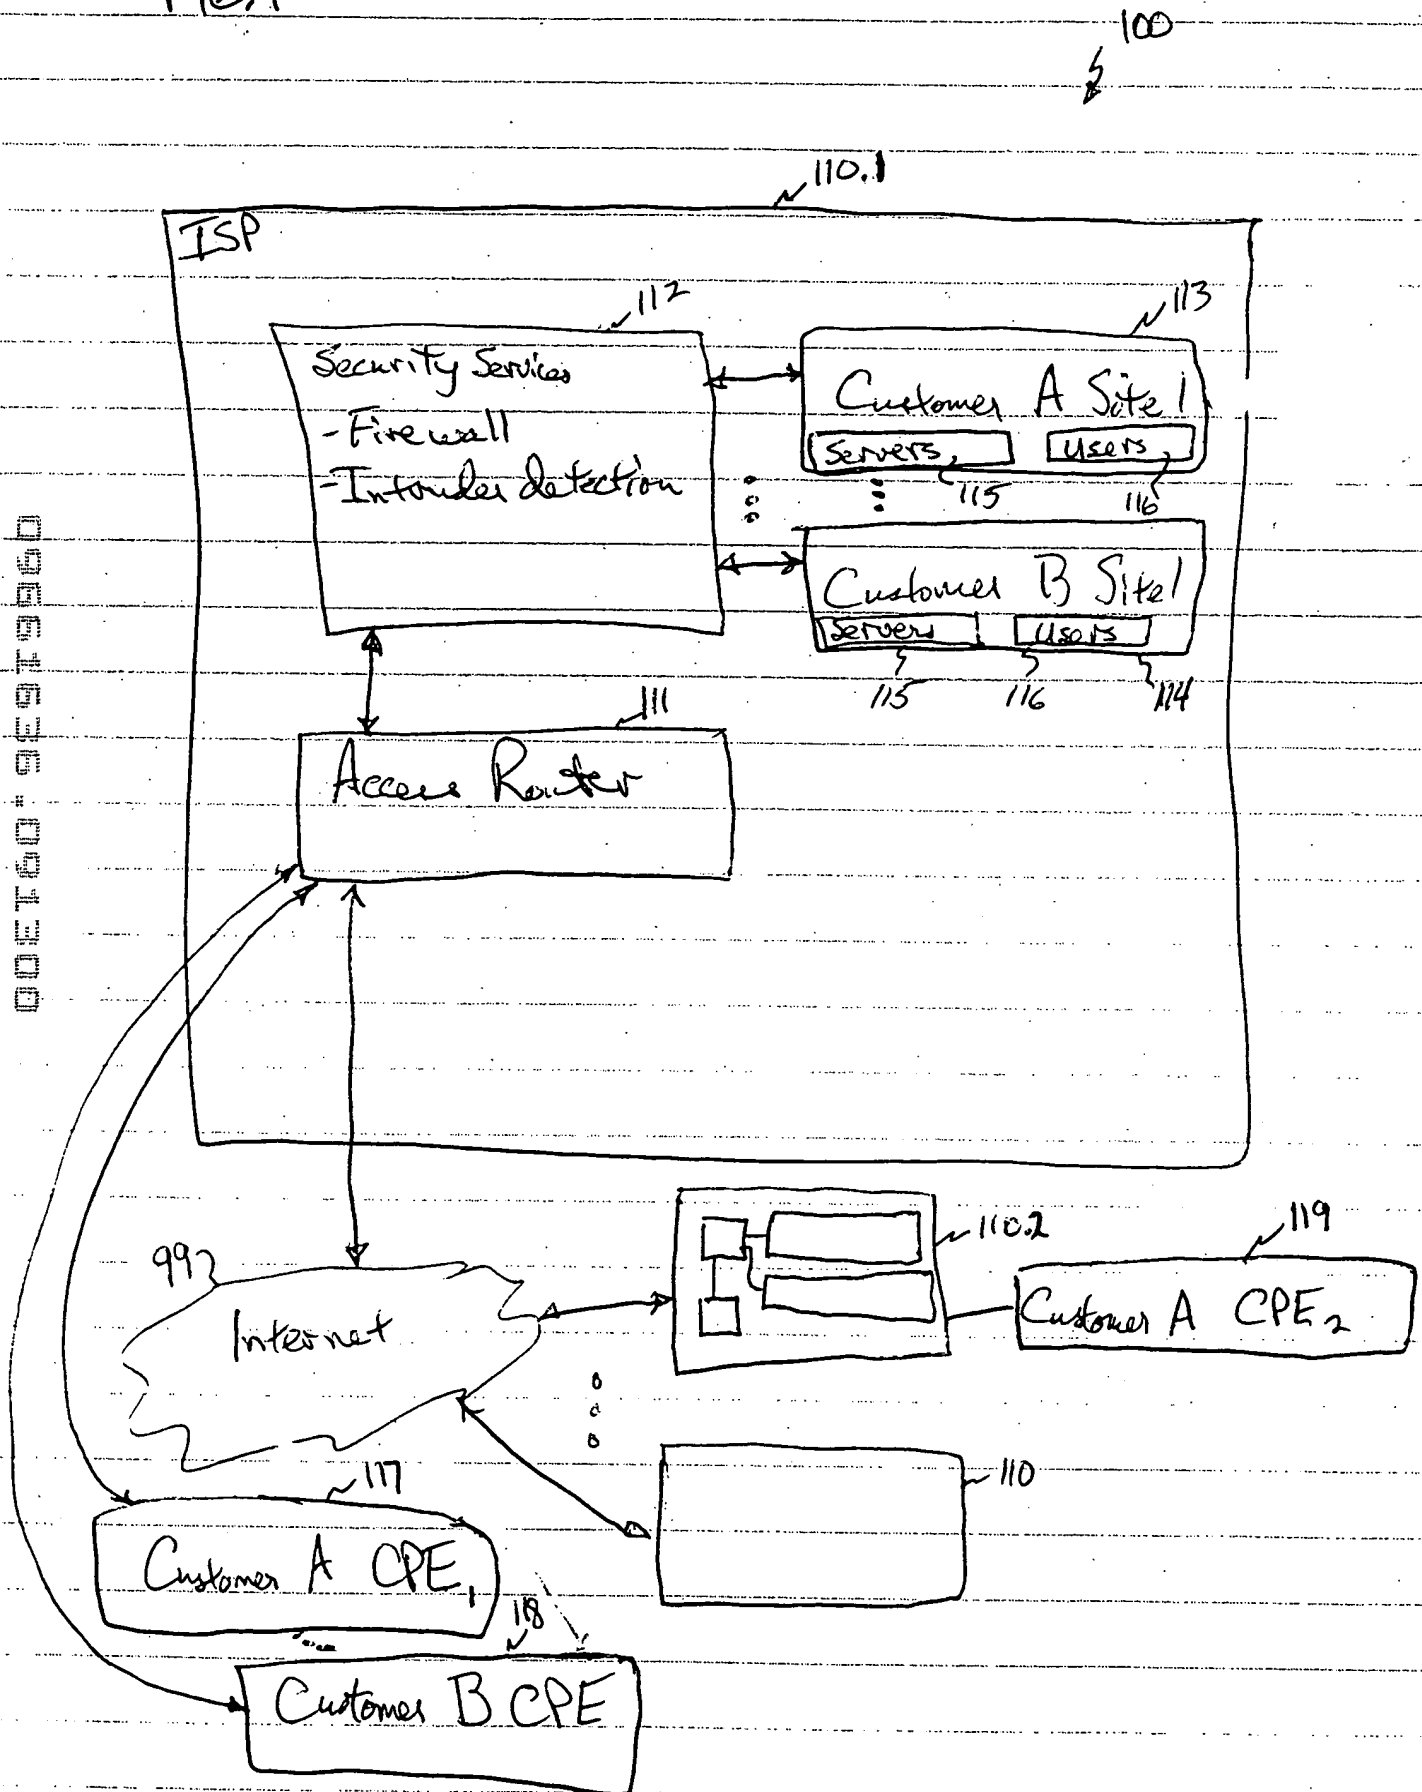 100
110.1
ISP
112
113
Security Services
-Firewall
-Intruder detection
Customer A Site 1
Servers
Users
115
116
Customer B Site 1
Servers
Users
115
116
114
111
Access Router
09661636.091300
992
Internet
110.2
119
Customer A CPE2
110
117
Customer A CPE1
118
Customer B CPE